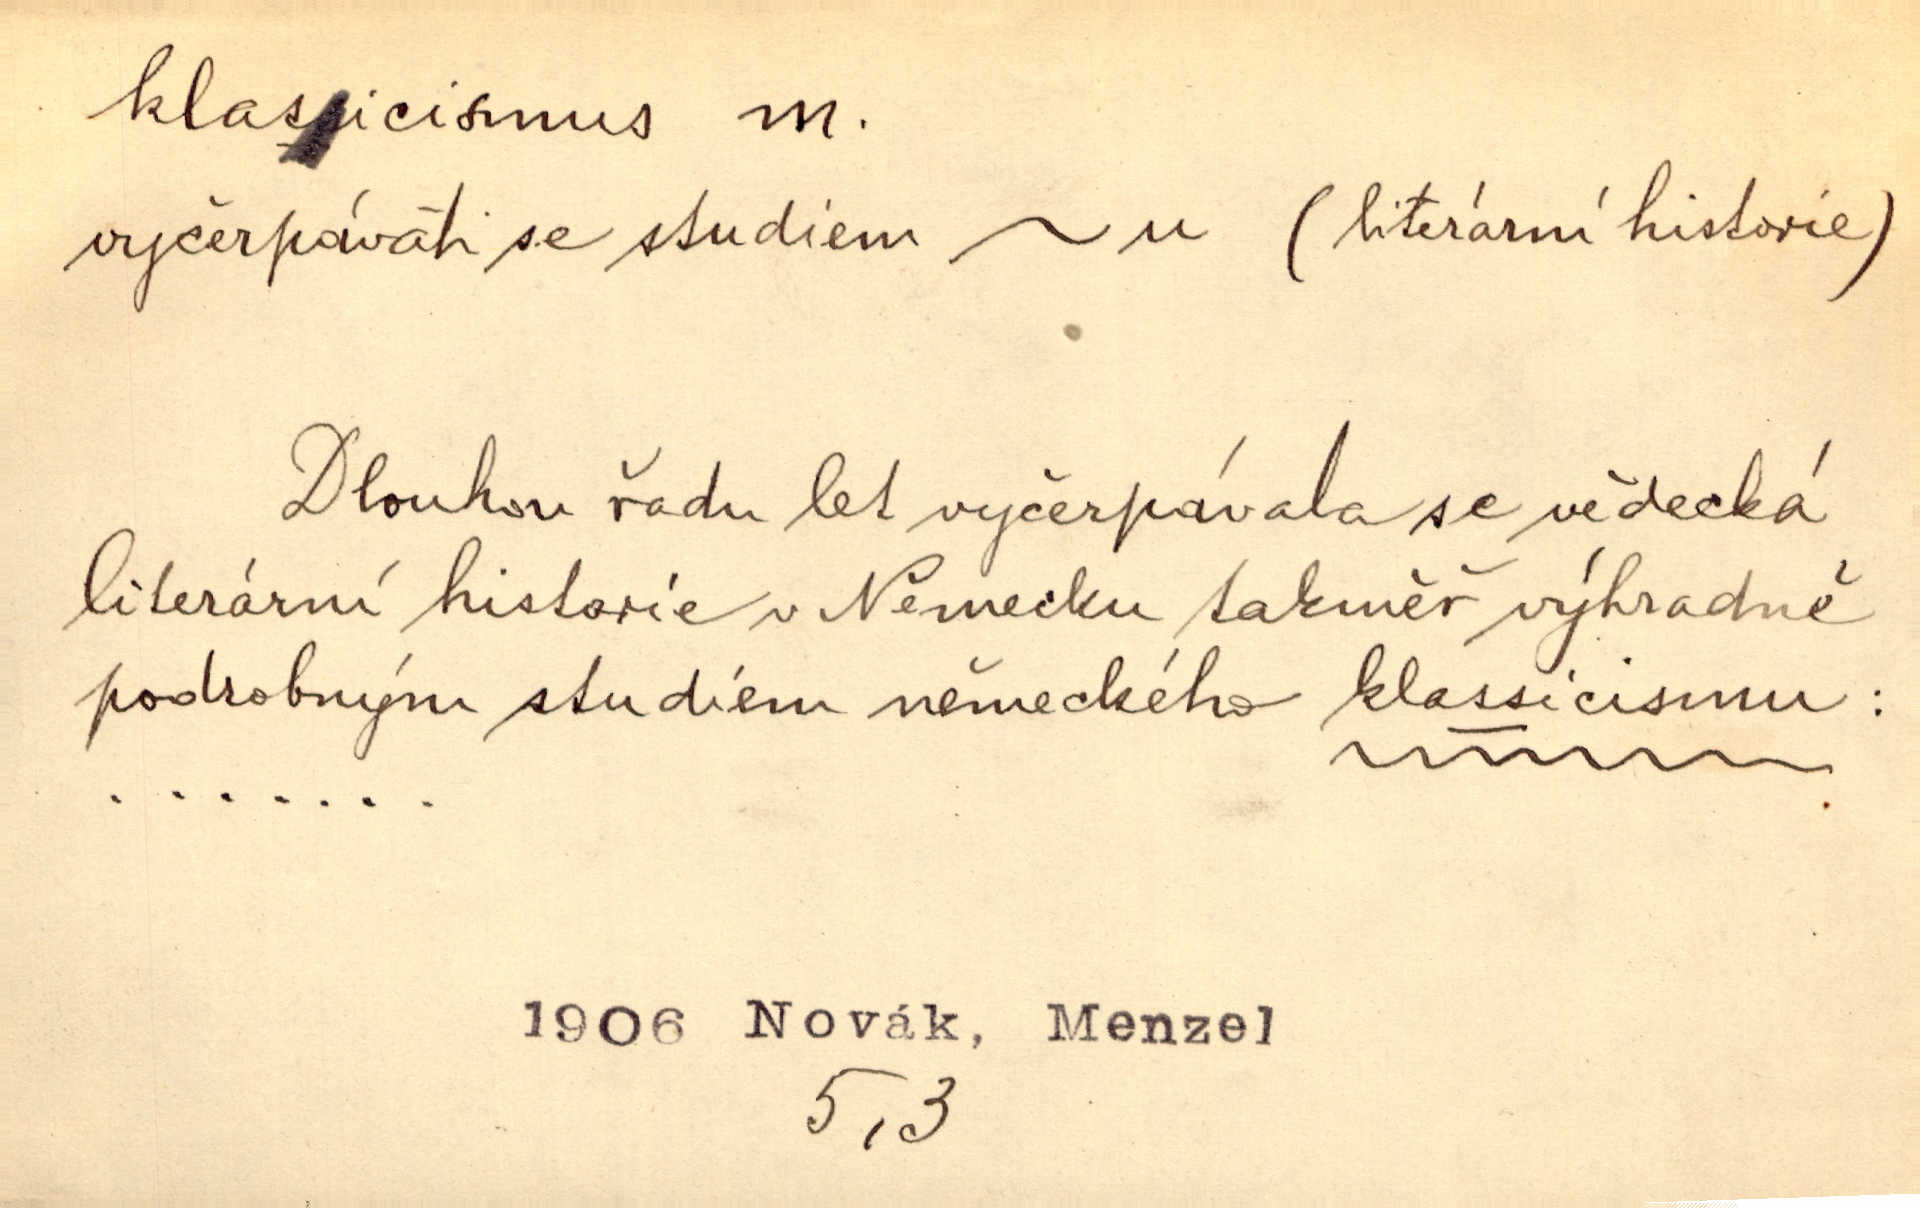 klassicismus m.
vyčerpávati se studiem ~u (literární historie)
Dlouhou řadu let vyčerpávala se vědecká
literární historie v Německu takměř výhradně
podrobným studiem německého klassicismu:
.......
1906 Novák, Menzel
5,3